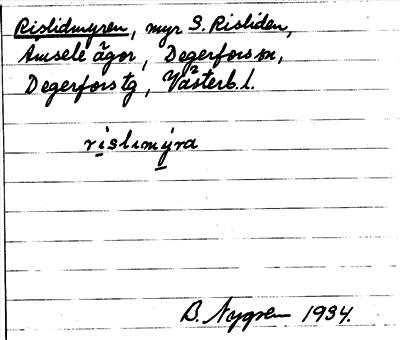 Rislidmyren, myr S. Risliden,
Amsele ägor, Degerfors sn,
Degerfors tg, Västerb. l.
rislımýra
B. Nygren 1934.